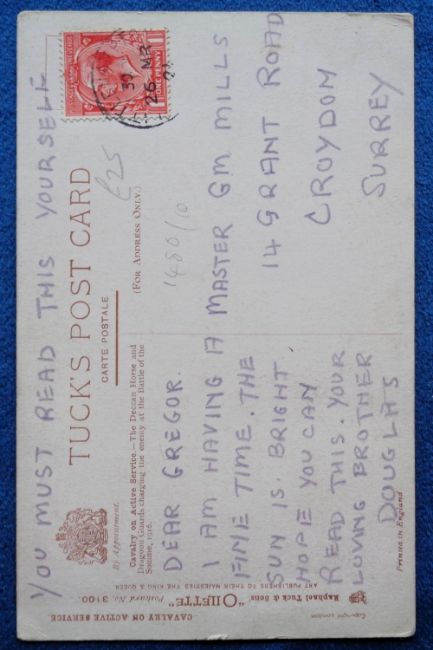 YOU MUST READ THIS YOURSELF
TUCK'S POST CARD
CARTE POSTALE
(FOR ADDRESS ONLY.)
By Appointment.
Cavalry on Active Service.—The Deccan Horse and
Dragoon Guards charging the enemy at the Battle of the
Somme, 1916.
£25
1480/10
ONE PENNY
26 MR
DEAR GREGOR.
I AM HAVING A
FINE TIME. THE
SUN IS. BRIGHT
HOPE YOU CAN
READ THIS. YOUR
LOVING BROTHER
DOUGLAS
MASTER GM MILLS
14 GRANT ROAD
CROYDON
SURREY
CAVALRY ON ACTIVE SERVICE
"OILETTE" Postcard No. 3100
Raphael Tuck & Sons
ART PUBLISHERS TO THEIR MAJESTIES THE KING & QUEEN
Copyright London
Printed in England